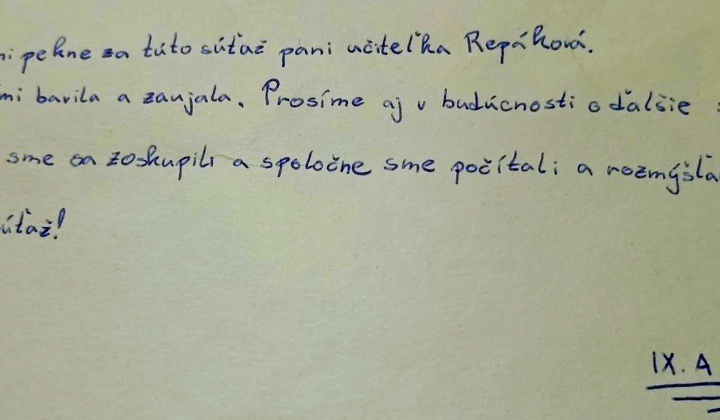 ni pekne za túto súťaž pani učiteľka Repáková.
mi bavila a zaujala. Prosíme aj v budúcnosti o ďalšie
sme sa zoskupili a spoločne sme počítali a rozmýšľa
úťaž!
IX. A